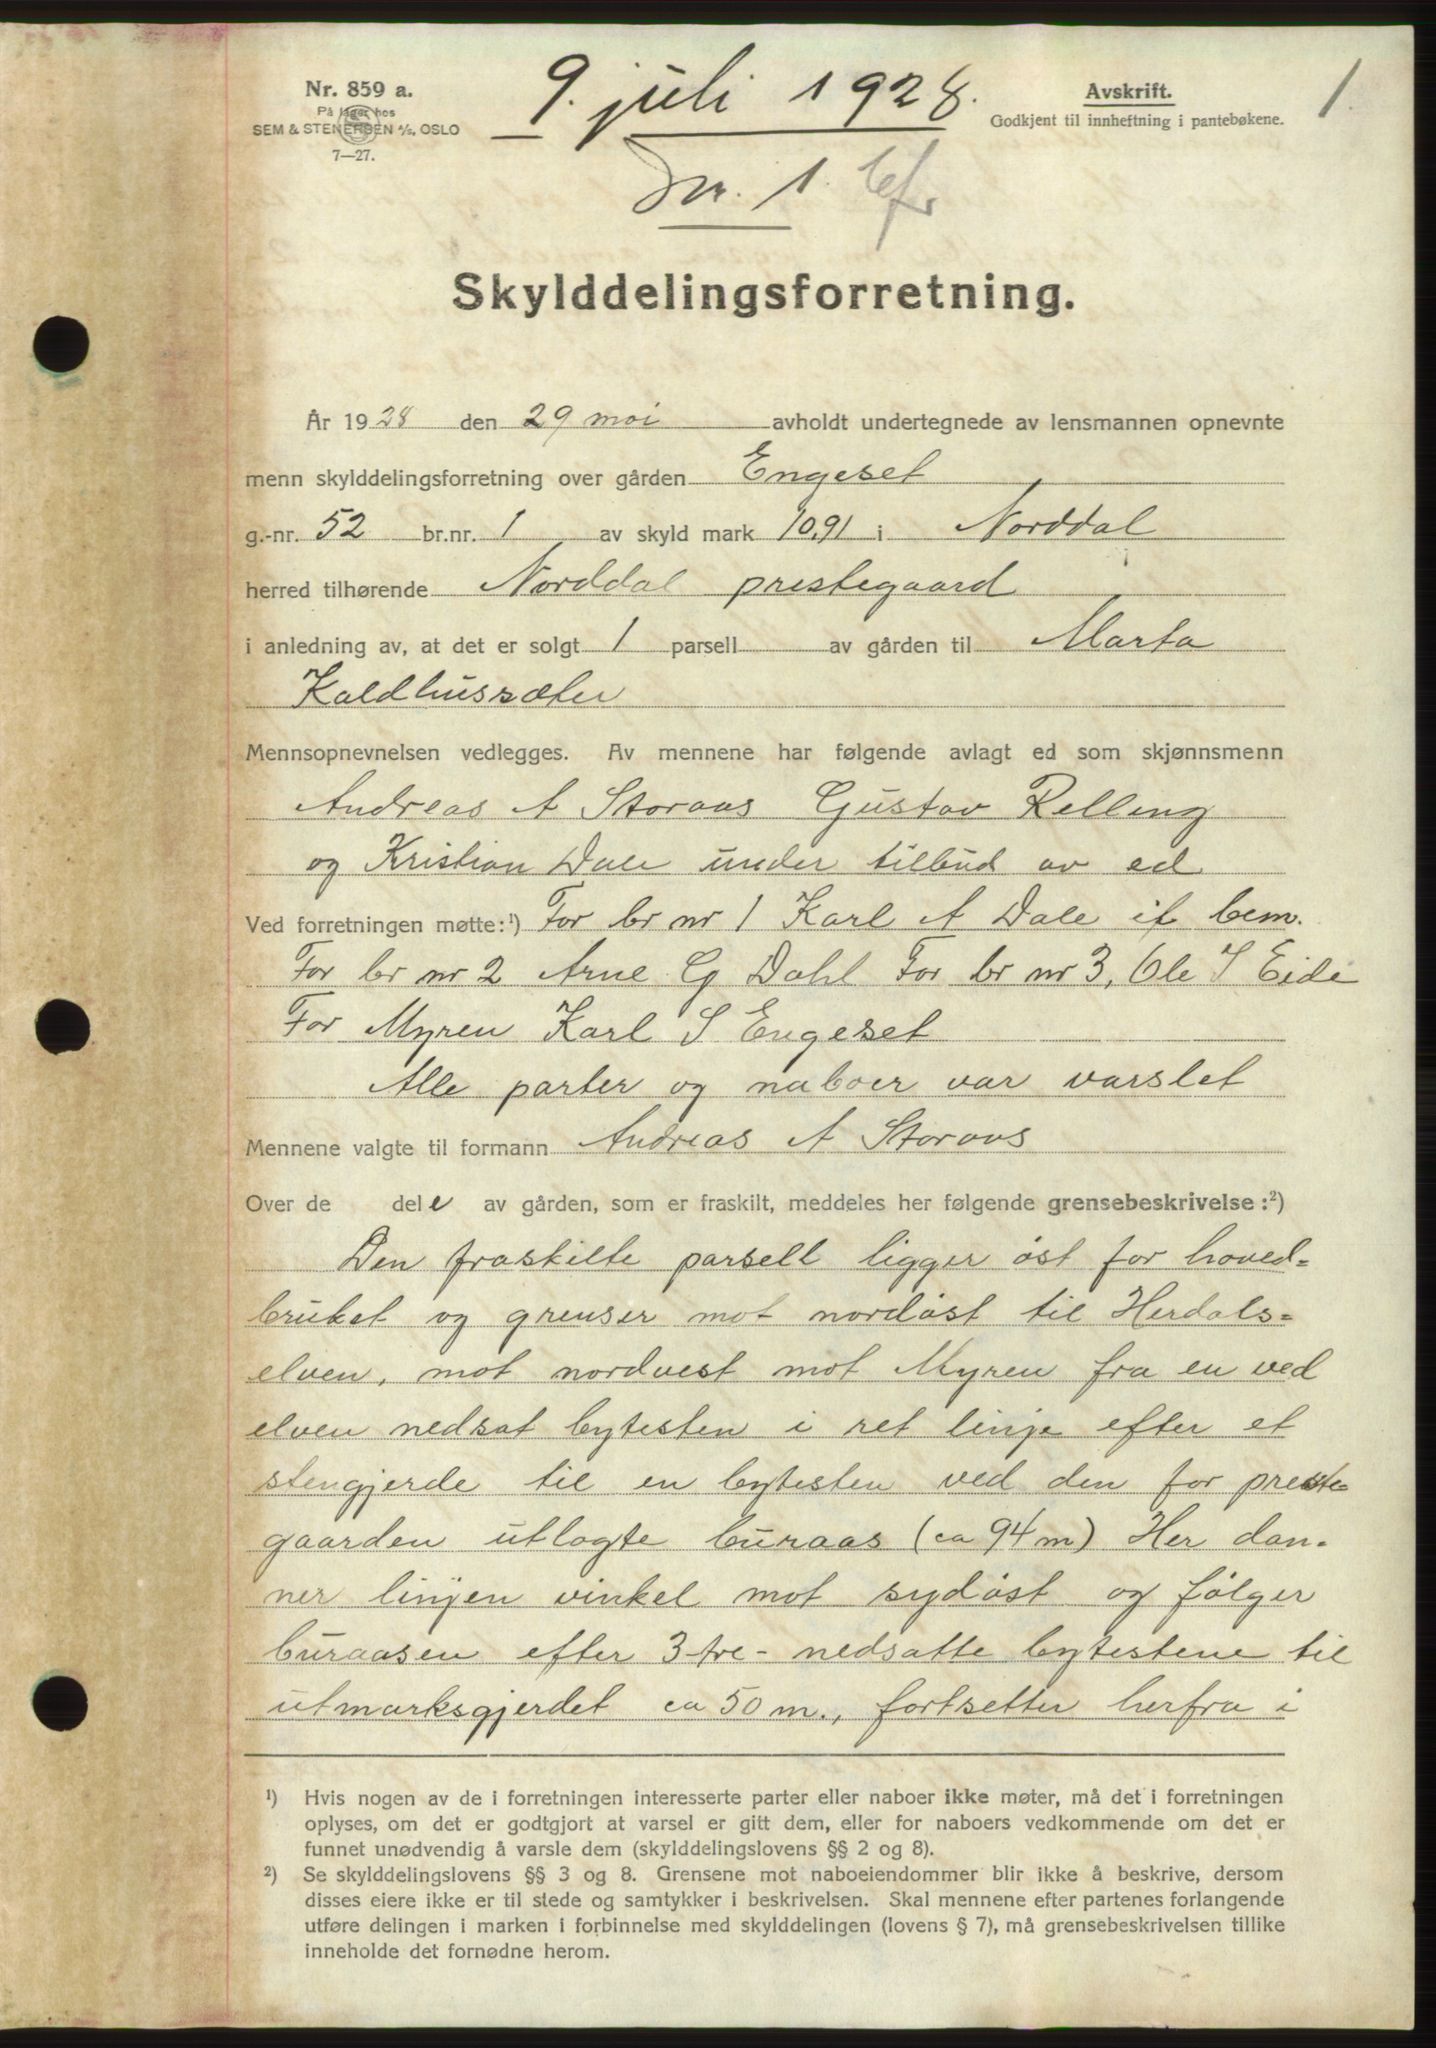 Nr. 859 a.
På lager hos
SEM & STENERSEN A/S, OSLO
7—27.
9. juli 1928.
Dnr. 1
Avskrift.
Godkjent til innheftning i pantebøkene.
1.
Skylddelingsforretning.
År 1928 den 29 mai avholdt undertegnede av lensmannen opnevnte
menn skylddelingsforretning over gården Engeset
g.-nr. 52 br.nr. 1 av skyld mark 10,91 i Norddal
herred tilhørende Norddal prestegaard
i anledning av, at det er solgt 1 parsell av gården til Marta
Kaldhussæter
Mennsopnevnelsen vedlegges. Av mennene har følgende avlagt ed som skjønnsmenn
Andreas A Storaas Gustav Relling
og Kristian Dale under tilbud av ed
Ved forretningen møtte:¹) For br nr 1 Karl A Dale if bem.
For br nr 2 Arne G Dahl For br nr 3, Ole S Eide
For Myren Karl S Engeset
Alle parter og naboer var varslet
Mennene valgte til formann Andreas A Storaas
Over de dele av gården, som er fraskilt, meddeles her følgende grensebeskrivelse:²)
Den fraskilte parsell ligger øst for hoved=
bruket og grenser mot nordøst til Herdals=
elven, mot nordvest mot Myren fra en ved
elven nedsat bytesten i ret linje efter et
stengjerde til en bytesten ved den for preste=
gaarden utlagte buraas (ca 94 m) Her dan=
ner linjen vinkel mot sydøst og følger
buraasen efter 3-tre- nedsatte bytestene til
utmarksgjerdet ca 50 m., fortsetter herfra i
¹) Hvis nogen av de i forretningen interesserte parter eller naboer ikke møter, må det i forretningen
oplyses, om det er godtgjort at varsel er gitt dem, eller for naboers vedkommende om det er
funnet unødvendig å varsle dem (skylddelingslovens §§ 2 og 8).
²) Se skylddelingslovens §§ 3 og 8. Grensene mot naboeiendommer blir ikke å beskrive, dersom
disses eiere ikke er til stede og samtykker i beskrivelsen. Skal mennene efter partenes forlangende
utføre delingen i marken i forbinnelse med skylddelingen (lovens § 7), må grensebeskrivelsen tillike
inneholde det fornødne herom.